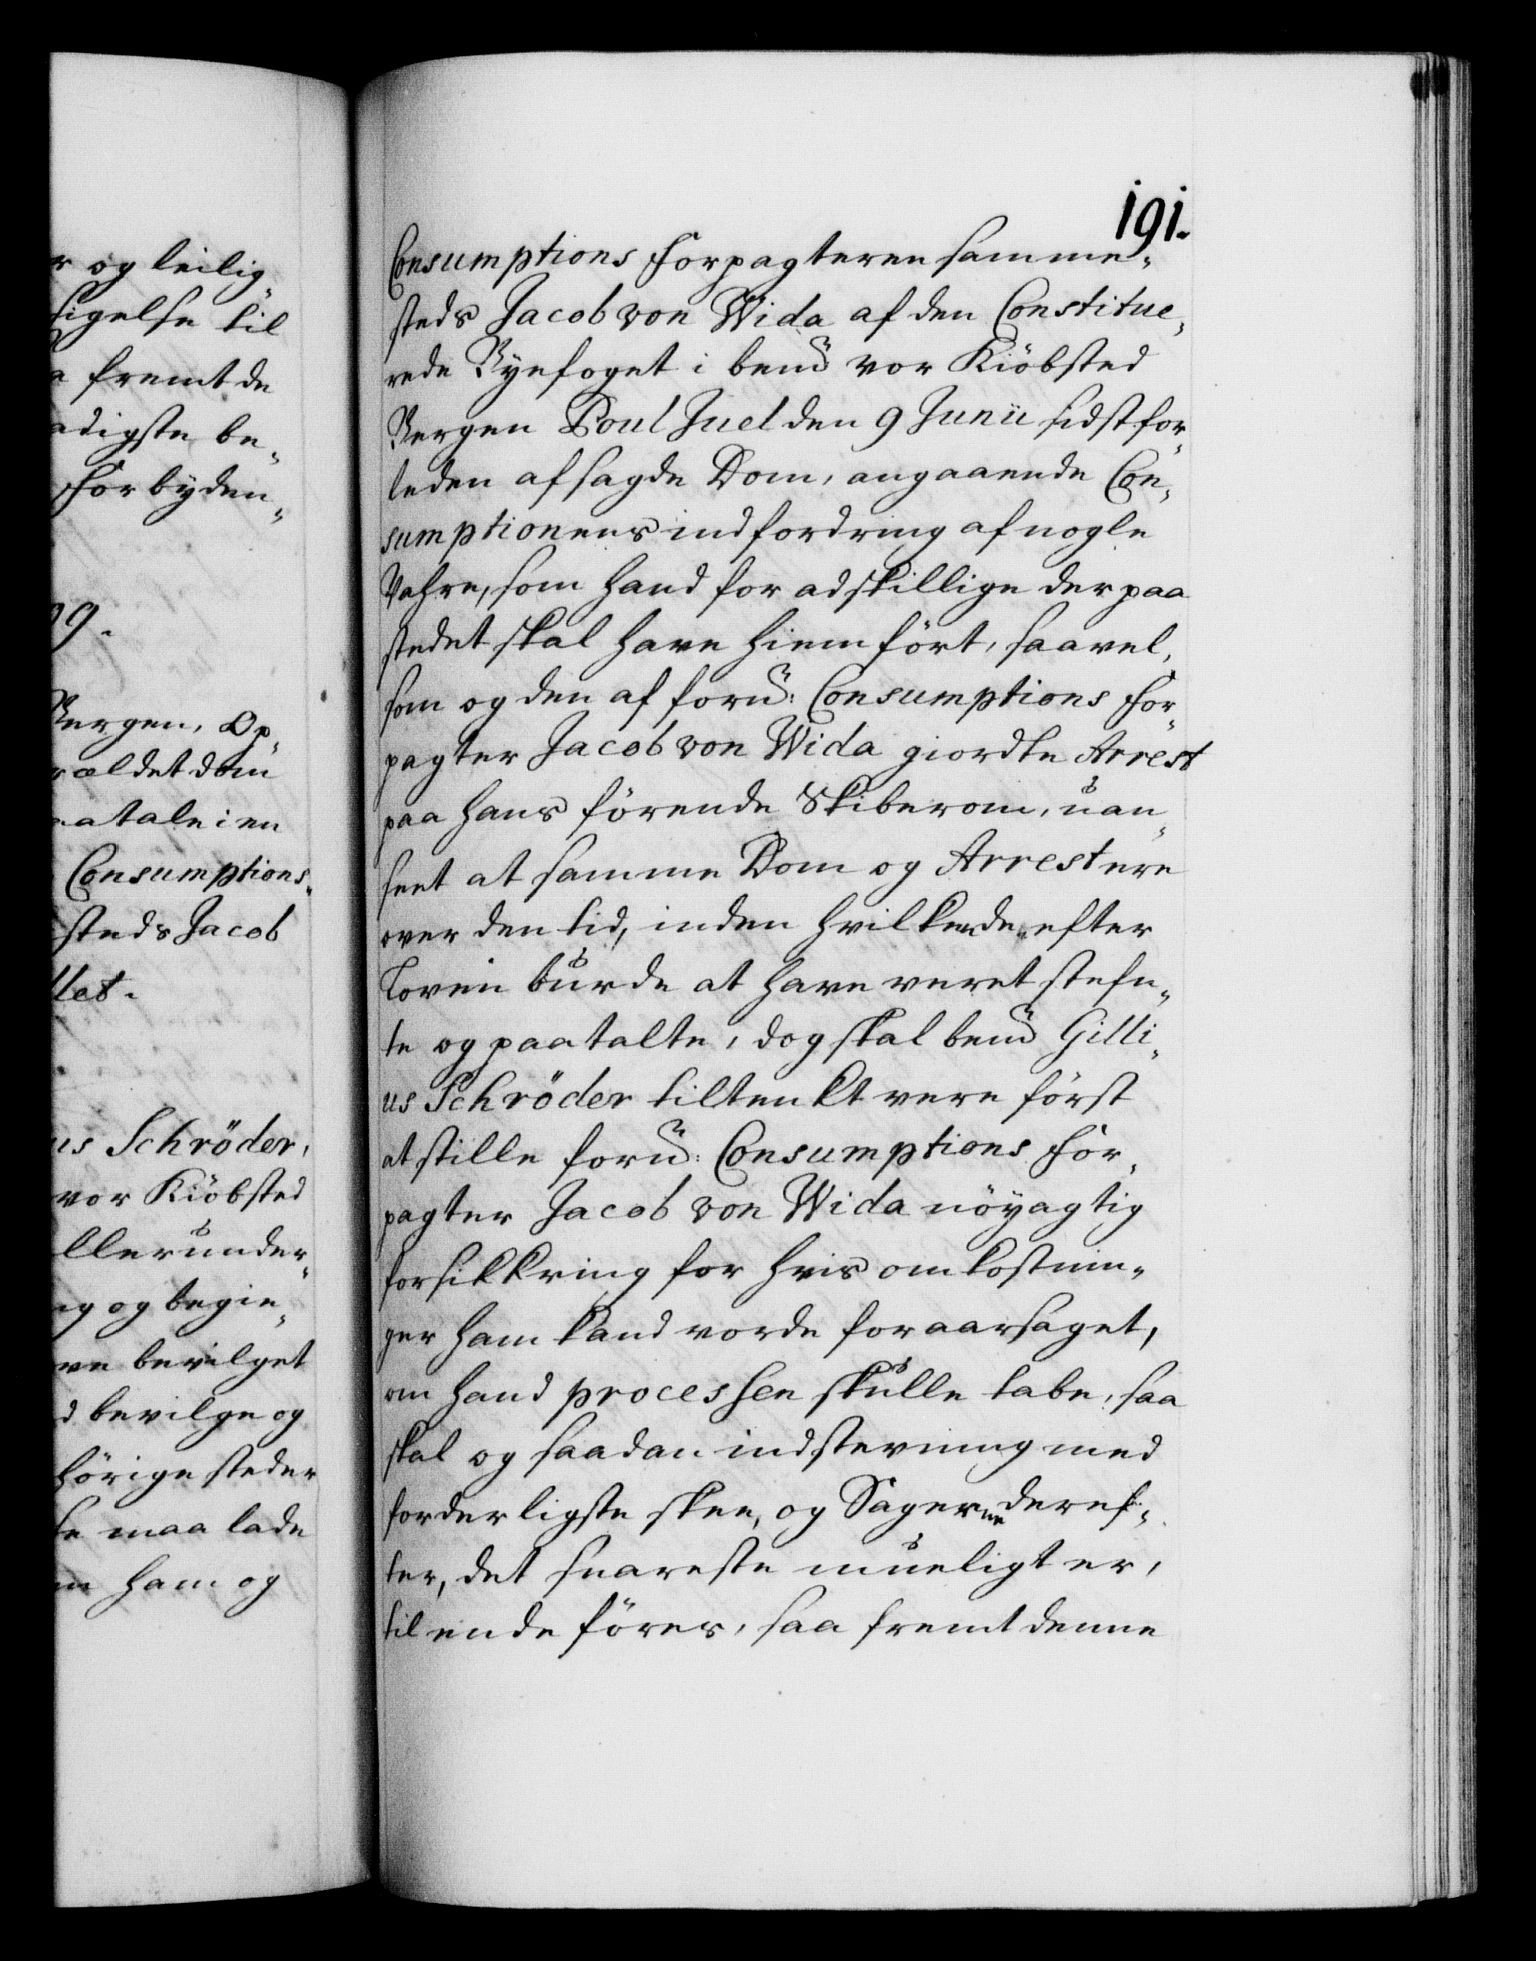 r og leilig-
sigelse til
a fremt de
adigste be-
Forbyden-
99.
Bergen, Op-
eldet dom
aatale i en
Consumptions
steds Jacob
llet.
us Schröder,
vor Kiöbsted
ller under-
og begie-
ve bevilget
d bevilge og
hörige steder
se maa lade
ham og
191.
Consumptions Forpagteren samme-
steds Jacob von Wida af den Constitue-
rede Byefoget i bemd vor Kiöbsted
Bergen Poul Juel den 9 Junii sidst for-
leden afsagde Dom, angaaende Con-
sumptionens indfordring af nogle
Vahre, som hand for adskillige der paa
stedet skal have hiemfört, saavel-
som og den af forñ: Consumptions For-
pagter Jacob von Wida giordte Arrest
paa hans förende Skiberom, uan-
seet at samme Dom og Arrest ere
over den tid, inden hvilken de efter
Loven burde at have veret stefn-
te og paatalte, dog skal bemd Gilli-
us Schröder tiltenkt vere först
at stille forñ: Consumptions For-
pagter Jacob von Wida nöyagtig
forsikkring for hvis omkostnin-
ger ham kand vorde foraarsaget,
om hand processen skulle tabe, saa
skal og saadan indstevning med
forderligste skee, og Sagerne deref-
ter, det snareste mueligt er,
til ende föres, saa fremt denne